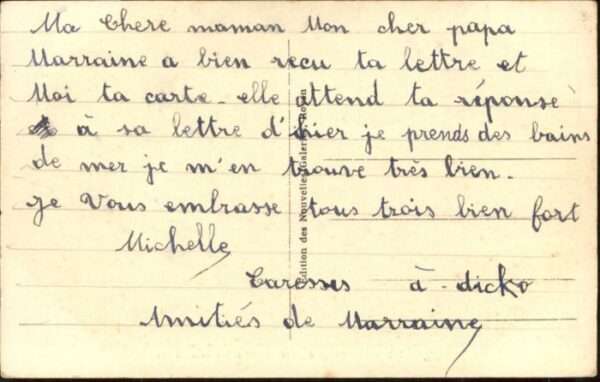 Ma Chere maman Mon cher papa
Marraine a bien recu ta lettre et
Moi ta carte - elle attend ta réponse
à sa lettre d'hier je prends des bains
de mer je m'en trouve très bien.
Je Vous embrasse tous trois bien fort
Michelle
Caresses à - dicko
Amitiés de Marraine
Edition des Nouvelles Galeries